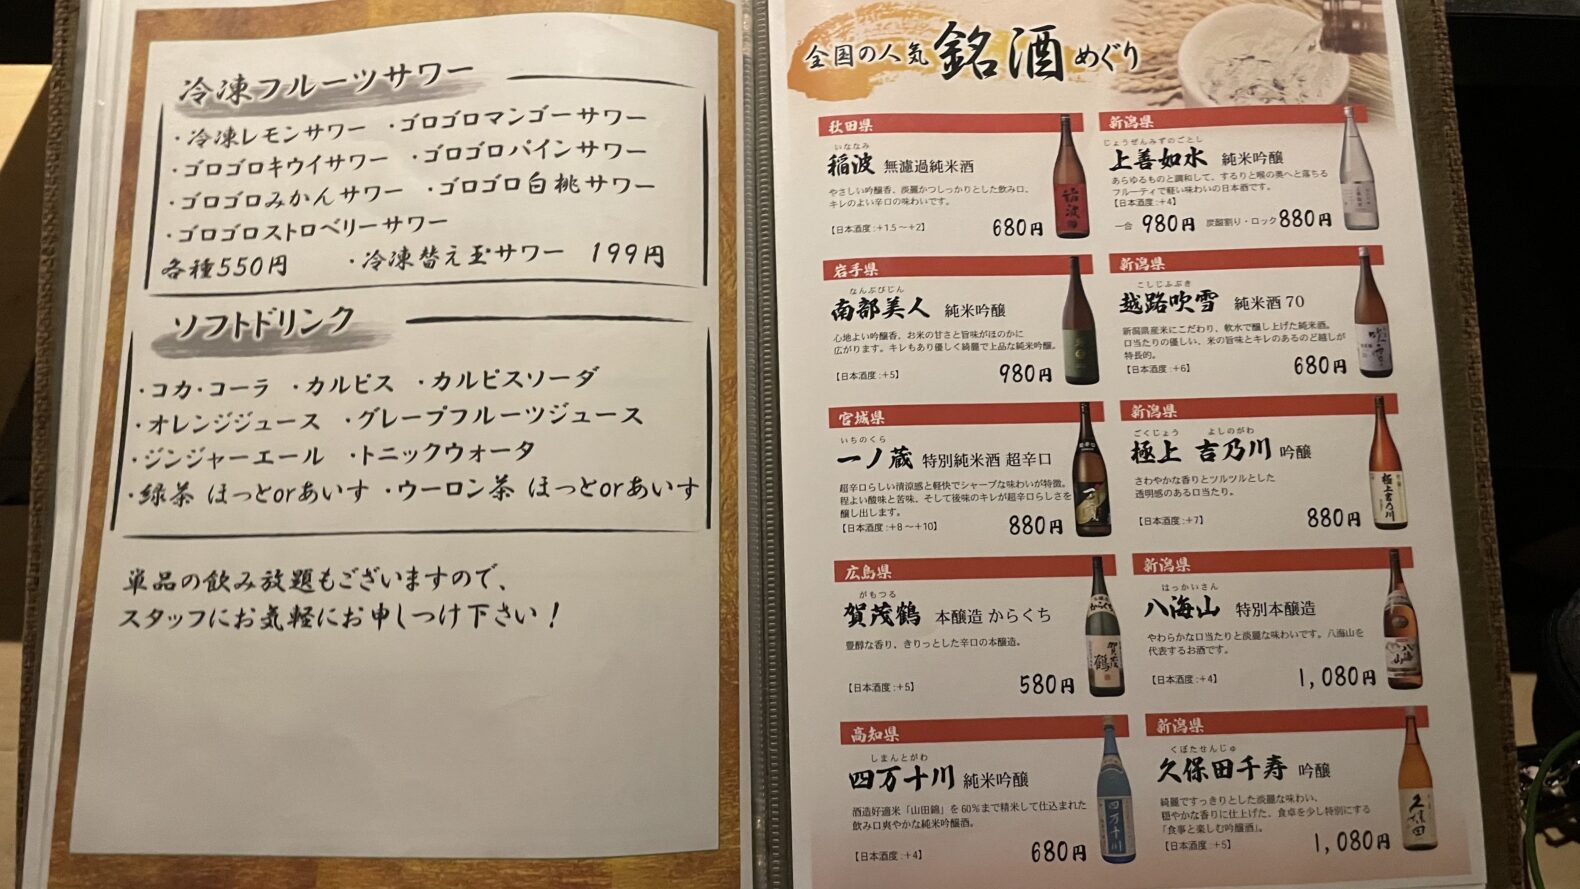 冷凍フルーツサワー
・冷凍レモンサワー ・ゴロゴロマンゴーサワー
・ゴロゴロキウイサワー ・ゴロゴロパインサワー
・ゴロゴロみかんサワー ・ゴロゴロ白桃サワー
・ゴロゴロストロベリーサワー
各種550円 ・冷凍替え玉サワー 199円
ソフトドリンク
・コカ・コーラ ・カルピス ・カルピスソーダ
・オレンジジュース ・グレープフルーツジュース
・ジンジャーエール ・トニックウォータ
・緑茶 ほっとorあいす ・ウーロン茶 ほっとorあいす
単品の飲み放題もございますので、
スタッフにお気軽にお申しつけ下さい！
全国の人気 銘酒 めぐり
秋田県
いななみ
稲波 無濾過純米酒
やさしい吟醸香、淡麗かつしっかりとした飲み口、
キレのよい辛口の味わいです。
【日本酒度:+1.5～+2】 680円
岩手県
なんぶびじん
南部美人 純米吟醸
心地よい吟醸香、お米の甘さと旨味がほのかに
広がります。キレもあり優しく綺麗で上品な純米吟醸。
【日本酒度:+5】 980円
宮城県
いちのくら
一ノ蔵 特別純米酒 超辛口
超辛口らしい清涼感と軽快でシャープな味わいが特徴。
程よい酸味と苦味、そして後味のキレが超辛口らしさを
醸し出します。
【日本酒度:+8～+10】 880円
広島県
がもつる
賀茂鶴 本醸造 からくち
豊醇な香り、きりっとした辛口の本醸造。
【日本酒度:+5】 580円
高知県
しまんとがわ
四万十川 純米吟醸
酒造好適米「山田錦」を60%まで精米して仕込まれた
飲み口爽やかな純米吟醸酒。
【日本酒度:+4】 680円
新潟県
じょうぜんみずのごとし
上善如水 純米吟醸
あらゆるものと調和して、するりと喉の奥へと落ちる
フルーティで軽い味わいの日本酒です。
【日本酒度:+4】
一合 980円 炭酸割り・ロック 880円
新潟県
こしじふぶき
越路吹雪 純米酒 70
新潟県産米にこだわり、軟水で醸し上げた純米酒。
口当たりの優しい、米の旨味とキレのあるのど越しが
特長的。
【日本酒度:+6】 680円
新潟県
ごくじょう よしのがわ
極上 吉乃川 吟醸
さわやかな香りとツルツルとした
透明感のある口当たり。
【日本酒度:+7】 880円
新潟県
はっかいさん
八海山 特別本醸造
やわらかな口当たりと淡麗な味わいです。八海山を
代表するお酒です。
【日本酒度:+4】 1,080円
新潟県
くぼたせんじゅ
久保田千寿 吟醸
綺麗ですっきりとした淡麗な味わい、
穏やかな香りに仕上げた、食卓を少し特別にする
「食事と楽しむ吟醸酒」。
【日本酒度:+5】 1,080円
稲波
極上吉乃川
からくち
賀茂鶴
八海山
四万十川
久保田